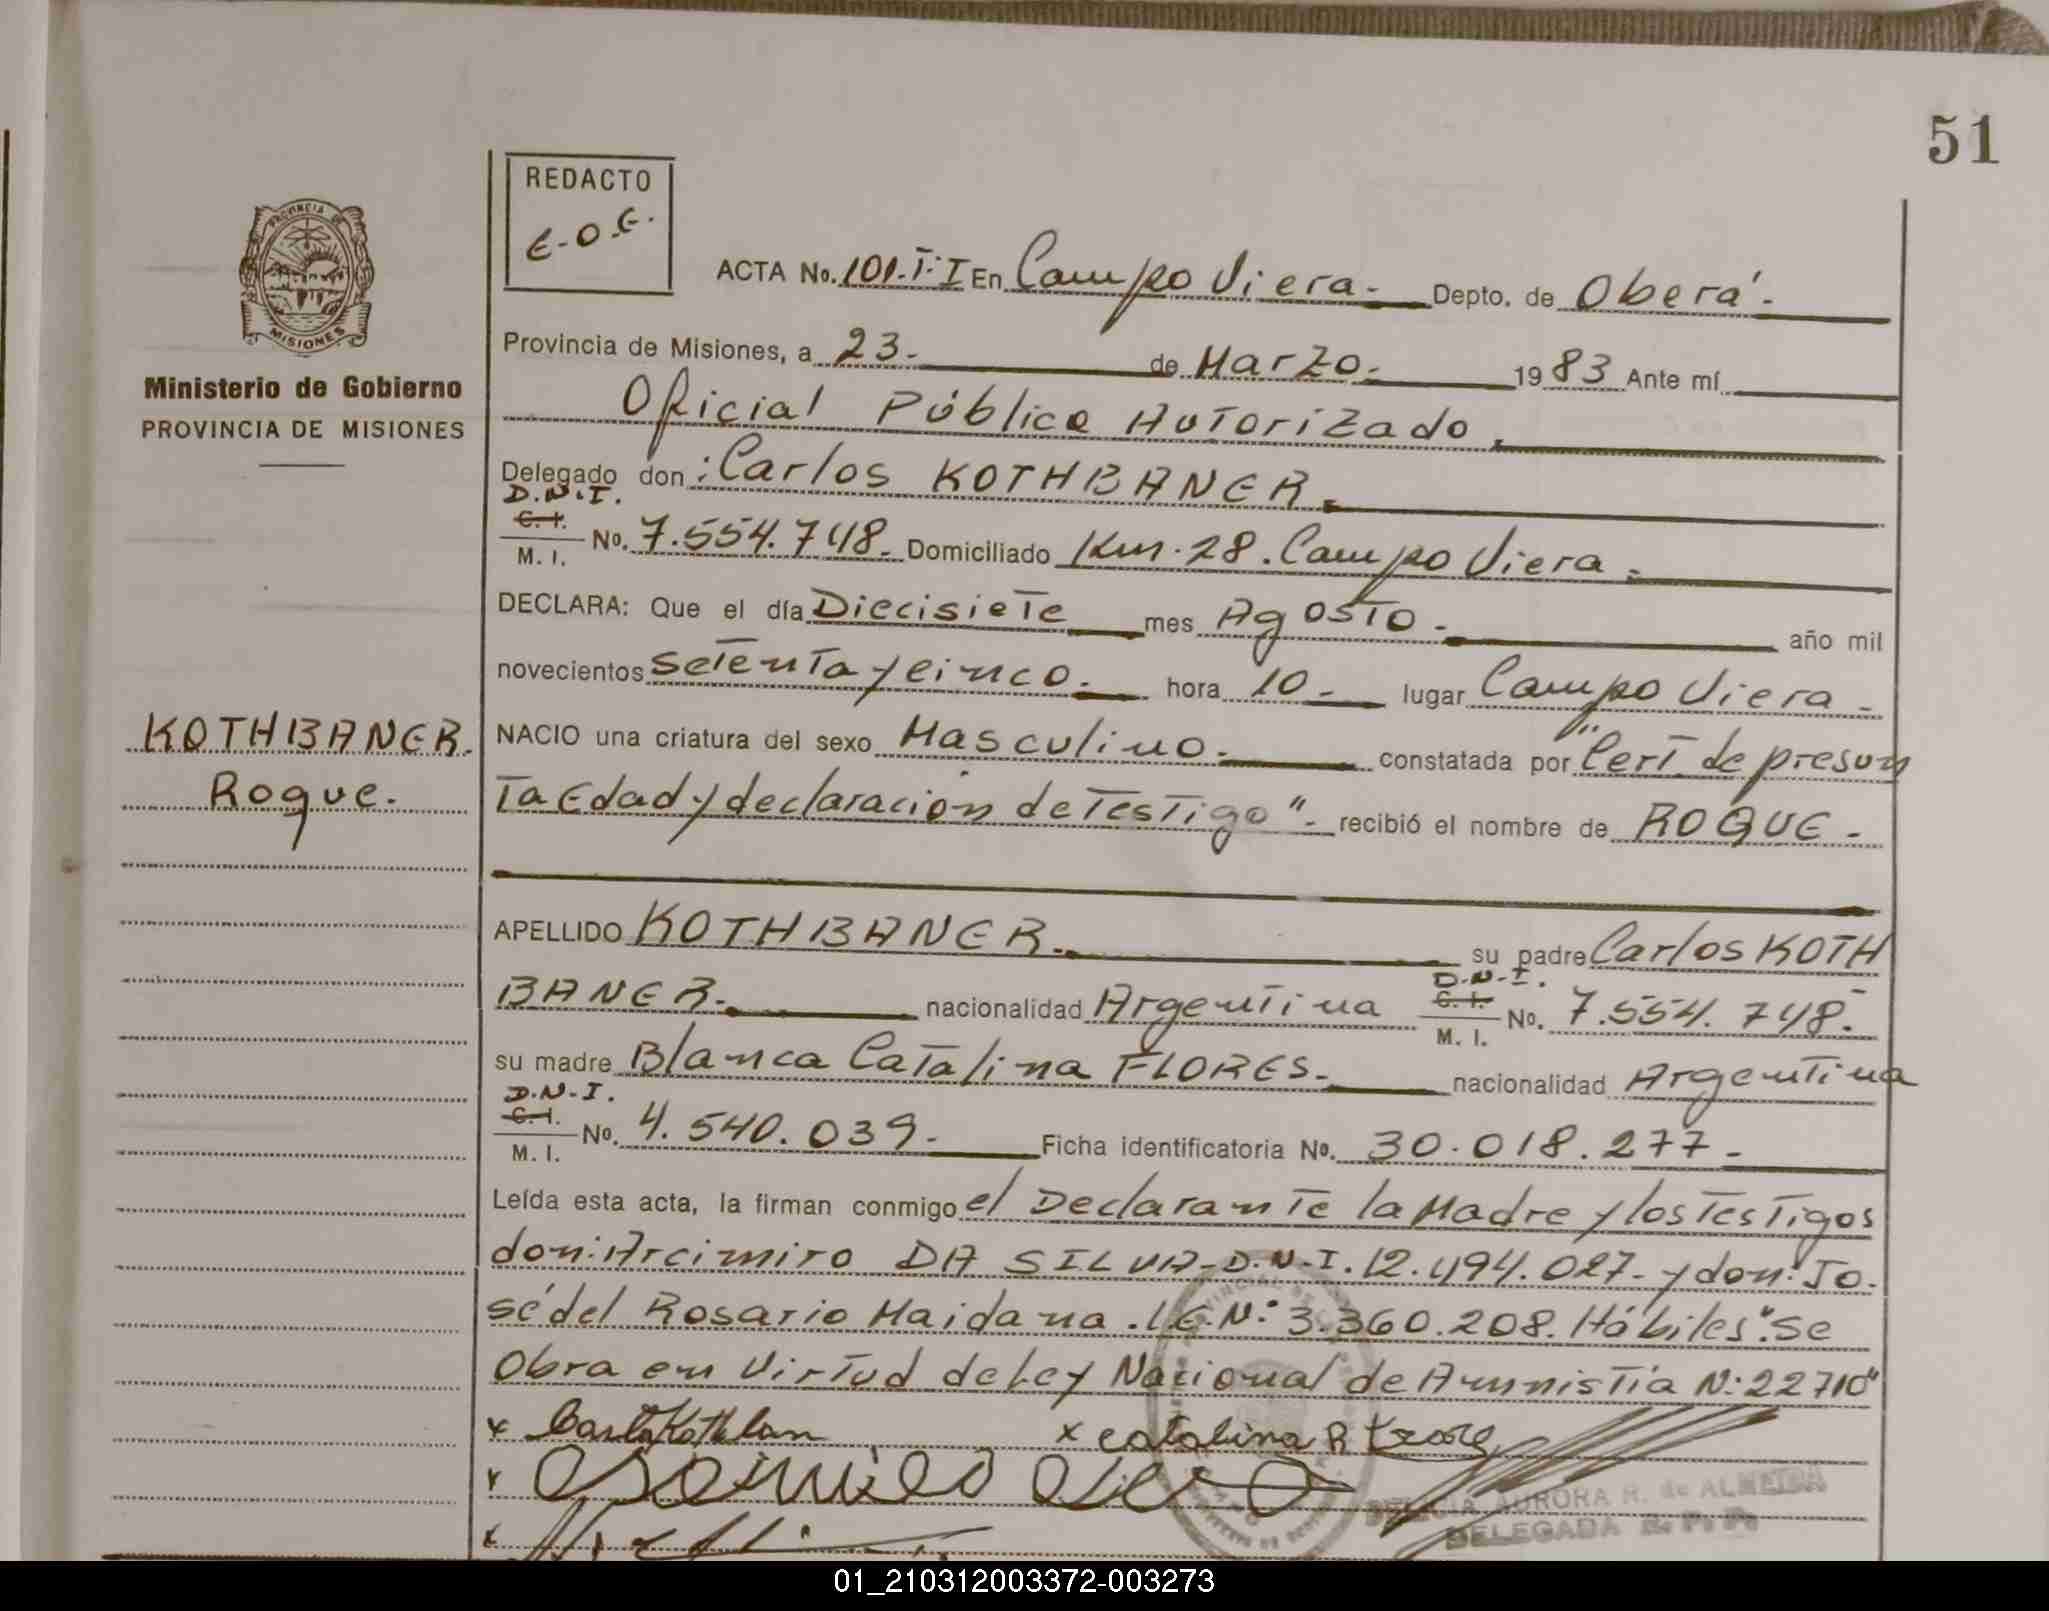 51
REDACTO
E.O.E.
PROVINCIA DE
MISIONES
Ministerio de Gobierno
PROVINCIA DE MISIONES
ACTA No. 101-T:I En Campo Viera.- Depto. de Oberá.-
Provincia de Misiones, a 23.- de Marzo.- 1983 Ante mí
Oficial Público Autorizado.
Delegado don: Carlos KOTHBANER.-
D.N.I.
C. I.
M. I. No. 7.554.748.- Domiciliado Km. 28. Campo Viera.-
DECLARA: Que el día Diecisiete mes Agosto.- año mil
novecientos setenta y cinco.- hora 10.- lugar Campo Viera.-
KOTHBANER.
Roque.-
NACIO una criatura del sexo Masculino.- constatada por "Cert de presun
ta Edad y declaración de Testigo".- recibió el nombre de ROQUE.-
APELLIDO KOTHBANER.- su padre Carlos KOTH
BANER.- nacionalidad Argentina D.N.I. C. I. M. I. No. 7.554.748.-
su madre Blanca Catalina FLORES.- nacionalidad Argentina
D.N.I.
C. I.
M. I. No. 4.540.039.- Ficha identificatoria No. 30.018.277.-
Leída esta acta, la firman conmigo el Declarante la Madre y los Testigos
don: Arcimiro DA SILVA-D.N.I. 12.494.027.- y don: Jo.
sé del Rosario Maidana. L.E.N: 3.360.208. Hábiles". Se
Obra en Virtud de Ley Nacional de Amnistía N: 22710"
AURORA R. de ALMEIDA
DELEGADA R. P. P.
01_210312003372-003273